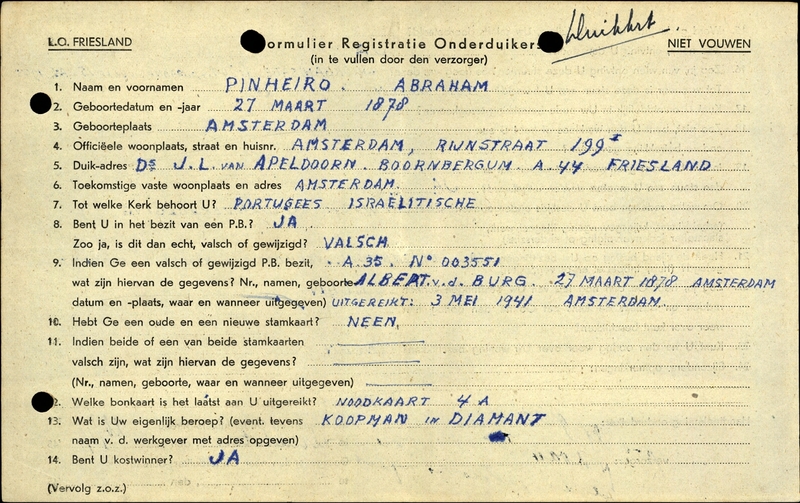 L.O. FRIESLAND
Formulier Registratie Onderduikers
NIET VOUWEN
(in te vullen door den verzorger)
1. Naam en voornamen PINHEIRO. ABRAHAM
2. Geboortedatum en -jaar 27 MAART 1878
3. Geboorteplaats AMSTERDAM
4. Officiëele woonplaats, straat en huisnr. AMSTERDAM, RIJNSTRAAT 199 I
5. Duik-adres Ds J.L. VAN APELDOORN. BOORNBERGUM A 44 FRIESLAND
6. Toekomstige vaste woonplaats en adres AMSTERDAM.
7. Tot welke Kerk behoort U? PORTUGEES ISRAËLITISCHE
8. Bent U in het bezit van een P.B.? JA
Zoo ja, is dit dan echt, valsch of gewijzigd? VALSCH
9. Indien Ge een valsch of gewijzigd P.B. bezit, A 35. No 003551
wat zijn hiervan de gegevens? Nr., namen, geboorte ALBERT v.d. BURG. 27 MAART 1878 AMSTERDAM
datum en -plaats, waar en wanneer uitgegeven) UITGEREIKT: 3 MEI 1941 AMSTERDAM.
10. Hebt Ge een oude en een nieuwe stamkaart? NEEN.
11. Indien beide of een van beide stamkaarten
valsch zijn, wat zijn hiervan de gegevens?
(Nr., namen, geboorte, waar en wanneer uitgegeven)
2. Welke bonkaart is het laatst aan U uitgereikt? NOODKAART 4 A
13. Wat is Uw eigenlijk beroep? (event. tevens KOOPMAN in DIAMANT
naam v. d. werkgever met adres opgeven)
14. Bent U kostwinner? JA
(Vervolg z.o.z.)